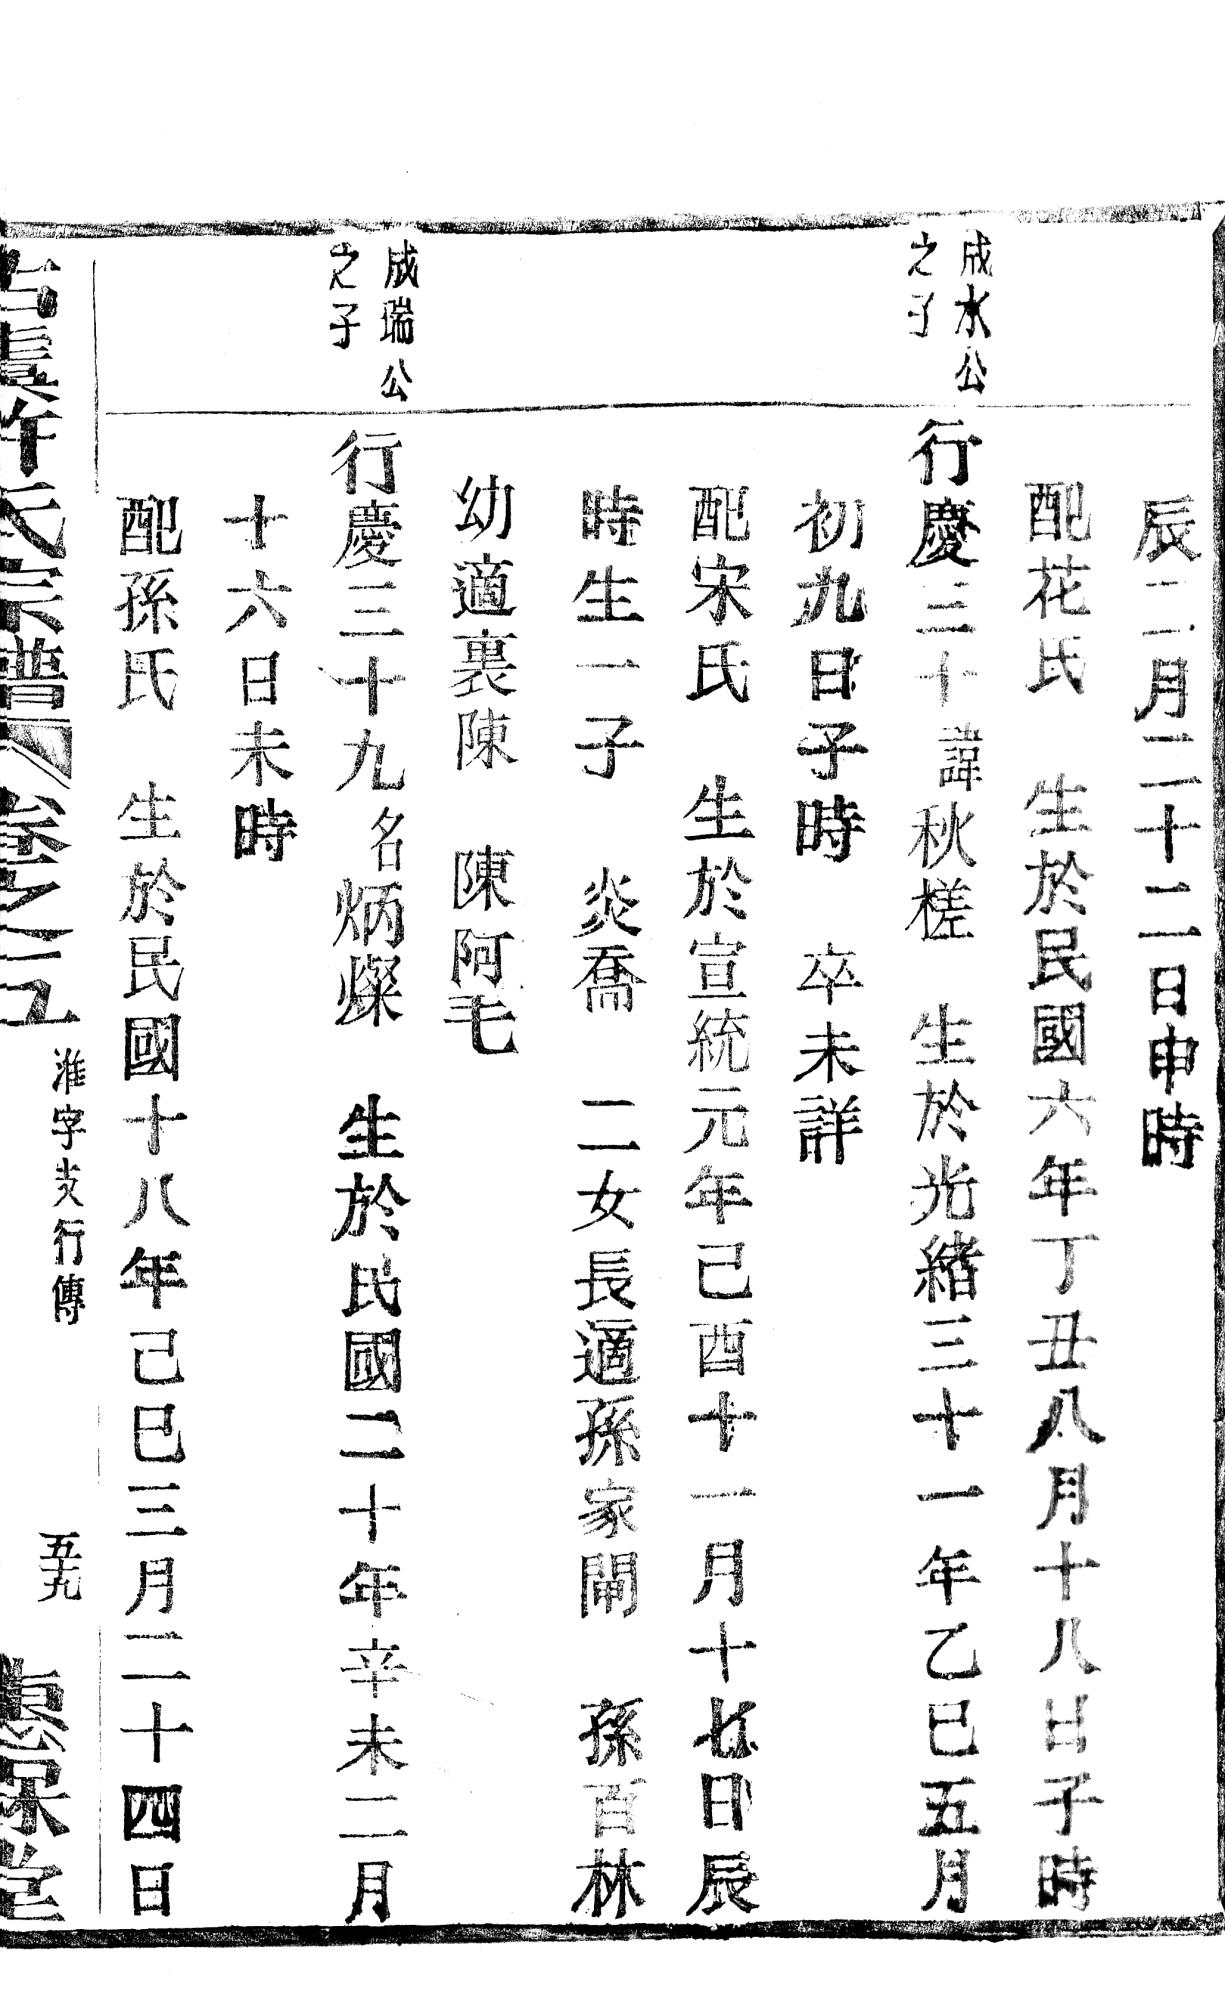 辰二月二十二日申時
配花氏　生於民國六年丁丑八月十八日子時
成水公
之子
行慶三十諱秋槎　生於光緒三十一年乙巳五月
初九日子時　卒未詳
配宋氏　生於宣統元年己酉十一月十七日辰
時生一子　炎喬　二女長適孫家閘　孫百林
幼適裏陳　陳阿毛
成瑞公
之子
行慶三十九名炳燦　生於民國二十年辛未二月
十六日未時
配孫氏　生於民國十八年己巳三月二十四日
古虞許氏宗譜　卷之五
淮字支行傳
五十九
惠保堂